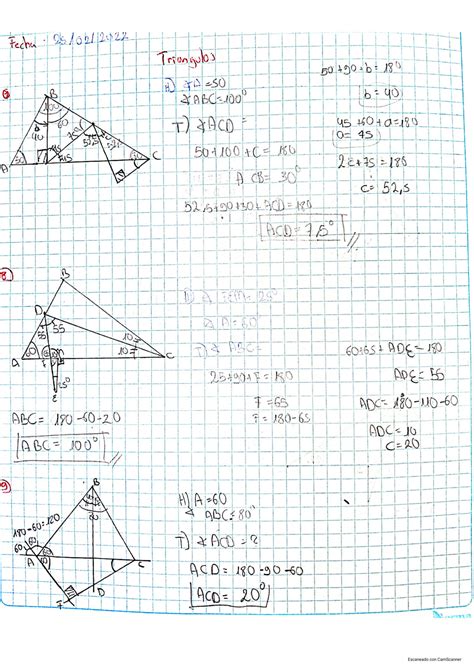 Fecha: 25/02/2022
Triangulos
H) ∢A=50
∢ABC=100°
T) ∢ACD=
50+100+C=180
ACB=30°
52,5+90+30+ACD=180
ACD=7,5°
50+90+b=180
b=40
45+60+a=180
a=45
2c+75=180
c=52,5
B
100
40
60
75
52,5
45
50
A
C
8)
B
D
55
55
10
10
A
60
C
25°
E
ABC= 180-60-20
ABC= 100°
∢A=60°
T) ∢ABC=
25+90+F=180
F=65
F=180-65
60+65+ADE=180
ADE=55
ADC=180-110-60
ADC=10
C=20
9)
B
180-60=120
60
60
A
C
D
F
H) A=60
∢ABC=80°
T) ∢ACD=?
ACD=180-90-60
ACD=20°
Escaneado con CamScanner